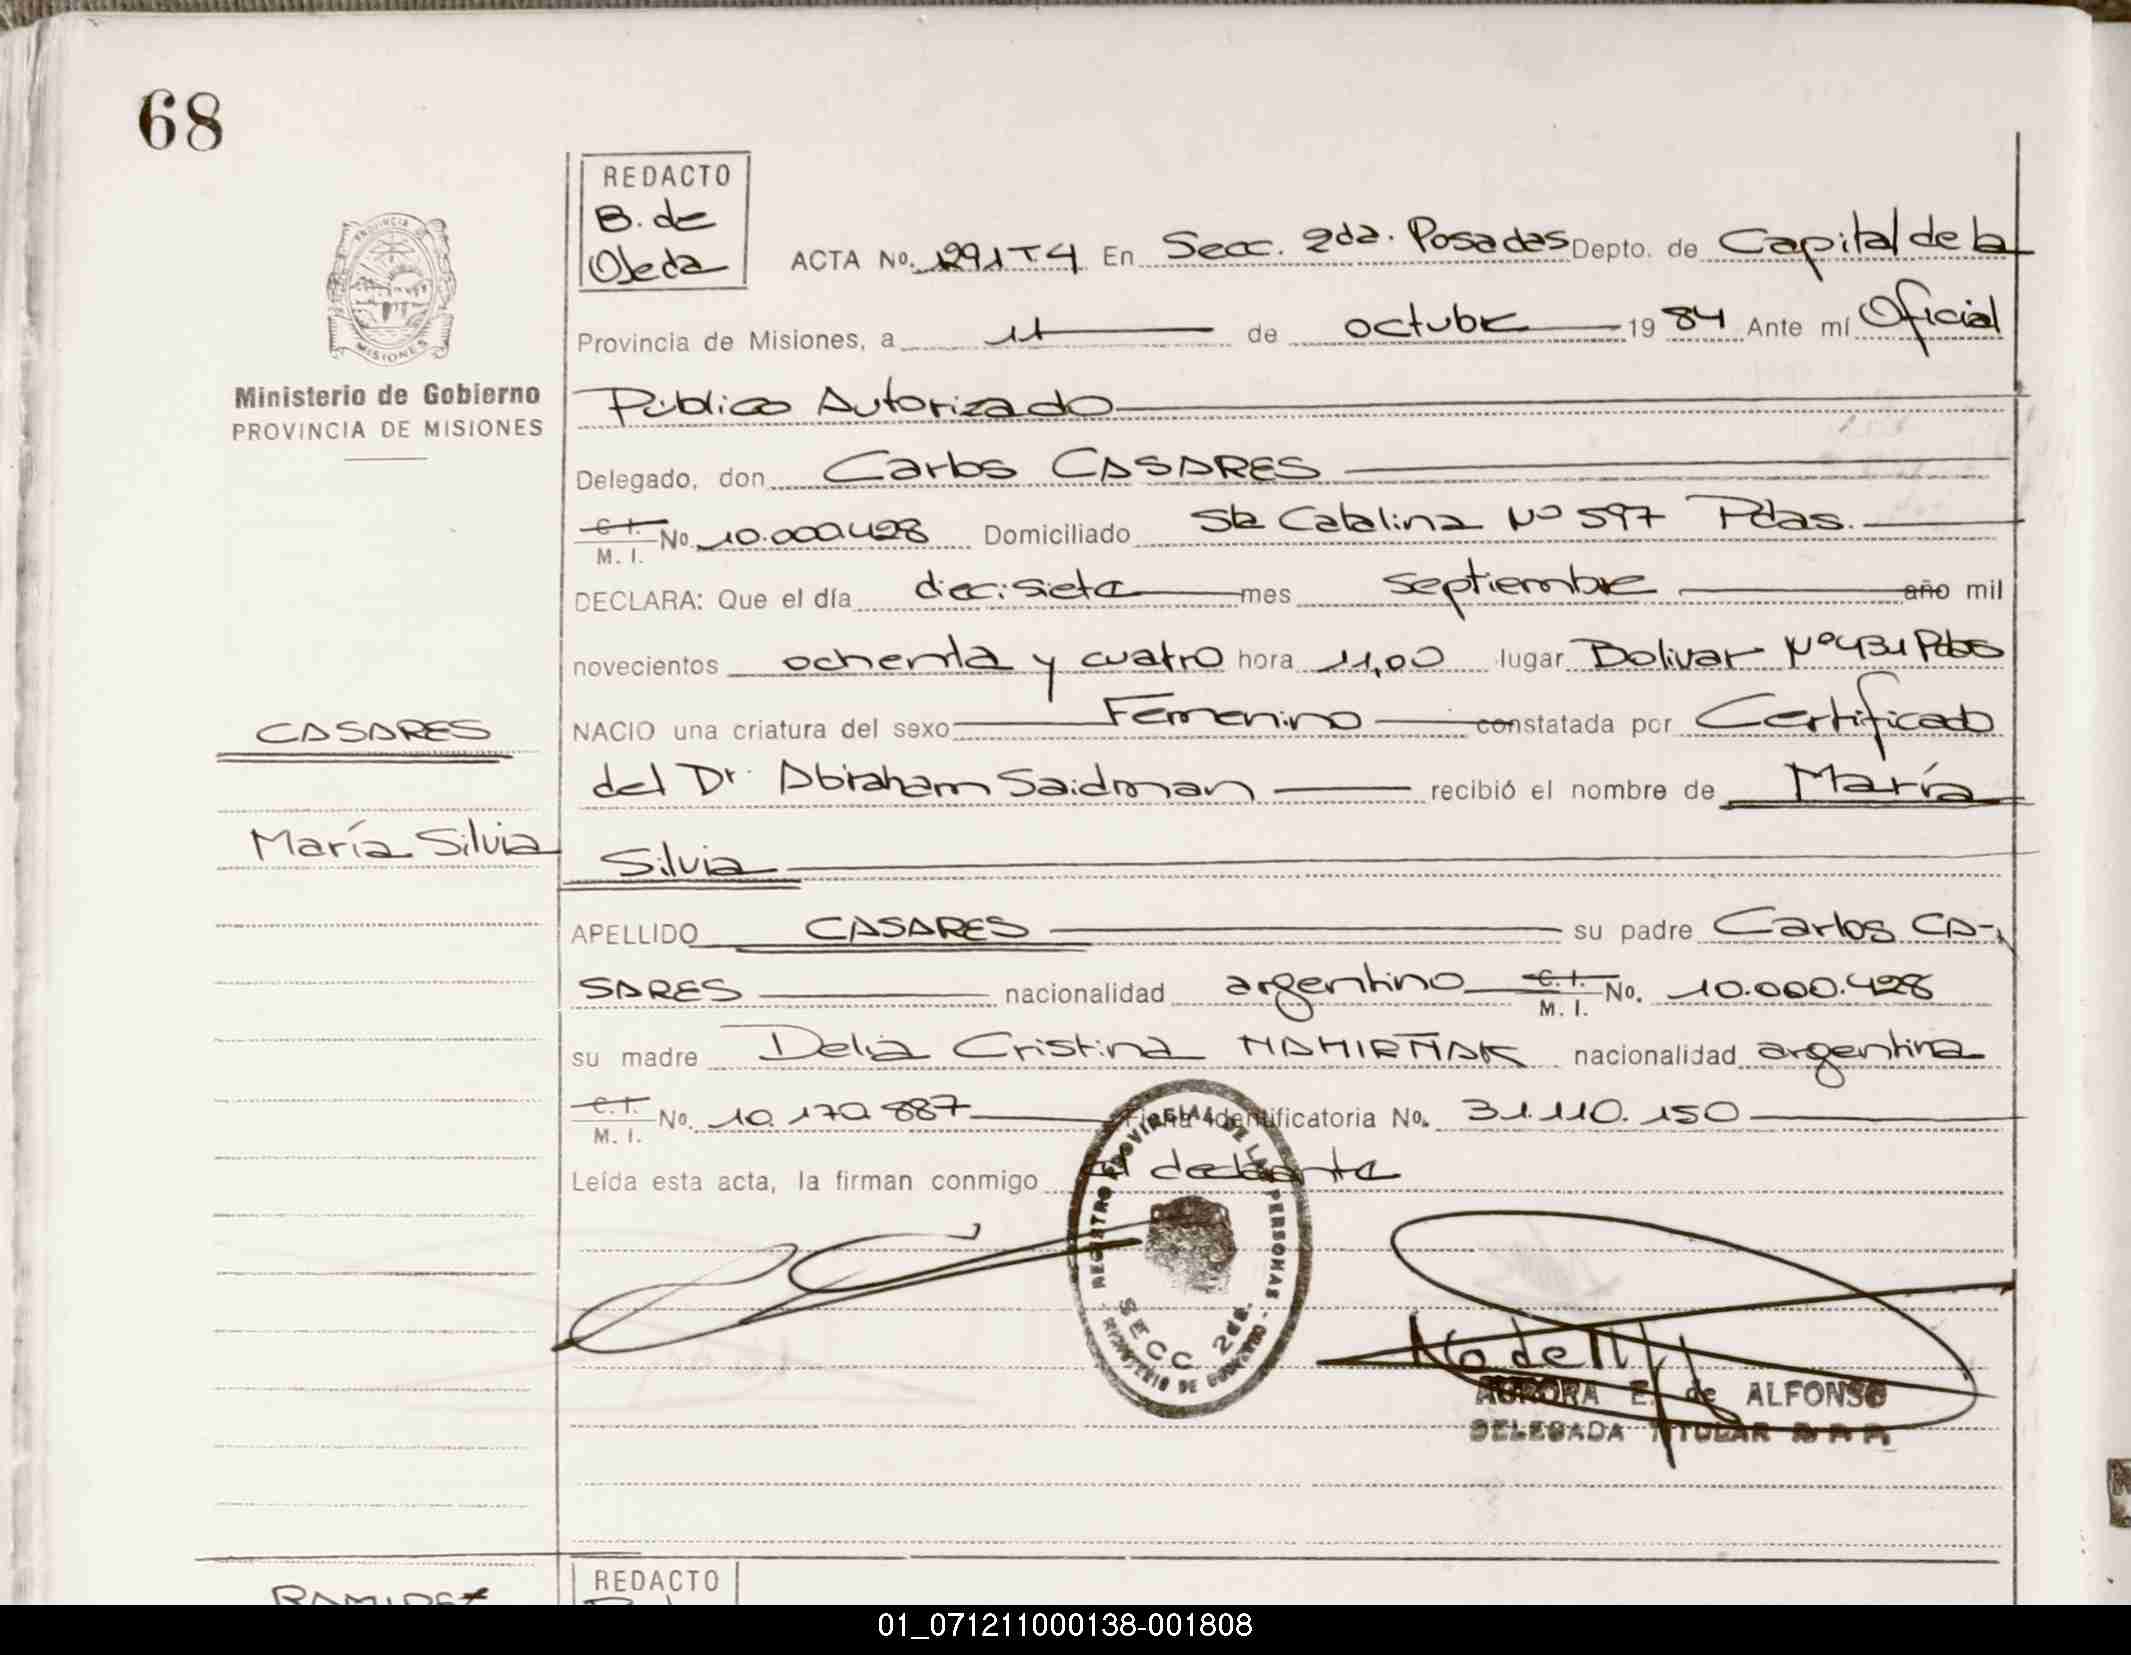 68
PROVINCIA DE
MISIONES
Ministerio de Gobierno
PROVINCIA DE MISIONES
CASARES
María Silvia
REDACTO
B. de
Ojeda
ACTA No. 1291 T4 En Secc. 2da. Posadas Depto. de Capital de la
Provincia de Misiones, a 11 de octubre 1984 Ante mí Oficial
Público Autorizado
Delegado, don Carlos CASARES
C. I.
M. I. No. 10.000.428 Domiciliado Sta Catalina Nº 597 Pdas.
DECLARA: Que el día diecisiete mes septiembre año mil
novecientos ochenta y cuatro hora 11,00 lugar Bolivar Nº 431 Pdas
NACIO una criatura del sexo Femenino constatada por Certificado
del Dr. Abraham Saidman recibió el nombre de María
Silvia
APELLIDO CASARES su padre Carlos CA-
SARES nacionalidad argentino C. I.
M. I. No. 10.000.428
su madre Delia Cristina nacionalidad argentina
C. I.
M. I. No. 10.170.887 Ficha Identificatoria No. 31.110.150
Leída esta acta, la firman conmigo el declarante
REGISTRO PROVINCIAL DE LAS PERSONAS
SECC 2da.
MINISTERIO DE GOBIERNO
AURORA E. de ALFONSO
DELEGADA TITULAR R.P.P.
RAMIREZ
REDACTO
01_071211000138-001808